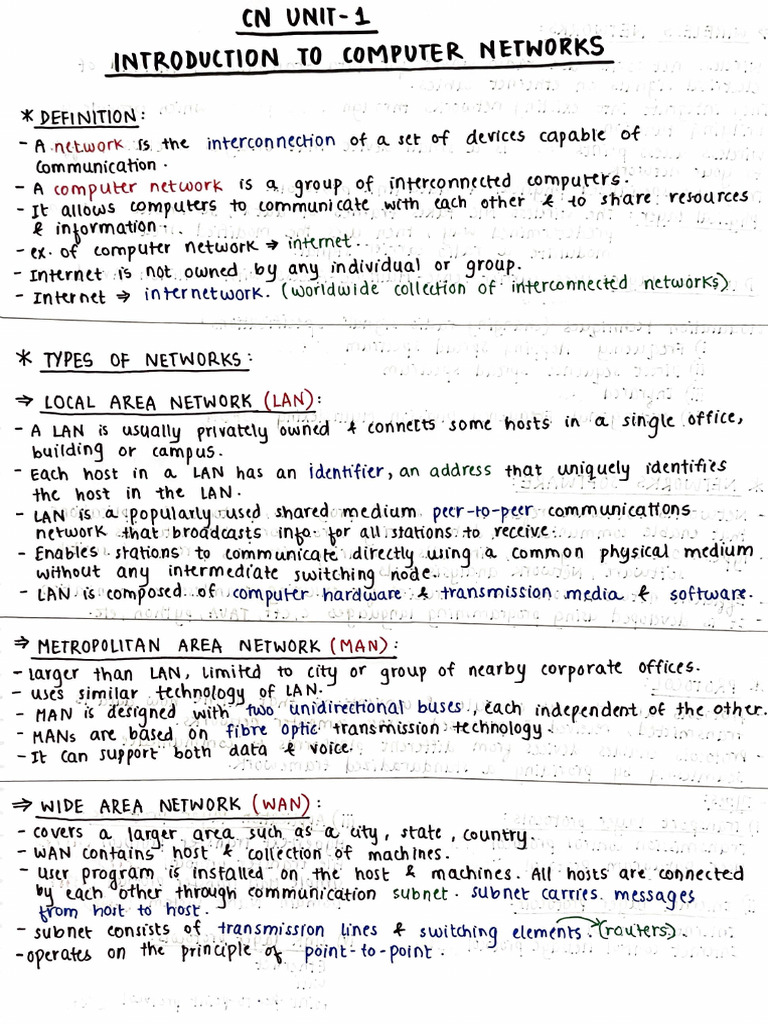 CN UNIT-1
INTRODUCTION TO COMPUTER NETWORKS
* DEFINITION:
- A network is the interconnection of a set of devices capable of
communication.
- A computer network is a group of interconnected computers.
- It allows computers to communicate with each other & to share resources
& information.
- ex. of computer network → internet.
- Internet is not owned by any individual or group.
- Internet ⇒ internetwork. (worldwide collection of interconnected networks)
* TYPES OF NETWORKS:
⇒ LOCAL AREA NETWORK (LAN):
- A LAN is usually privately owned & connects some hosts in a single office,
building or campus.
- Each host in a LAN has an identifier, an address that uniquely identifies
the host in the LAN.
- LAN is a popularly used shared medium peer-to-peer communications
network that broadcasts info for all stations to receive.
- Enables stations to communicate directly using a common physical medium
without any intermediate switching node.
- LAN is composed of computer hardware & transmission media & software.
⇒ METROPOLITAN AREA NETWORK (MAN):
- larger than LAN, limited to city or group of nearby corporate offices.
- uses similar technology of LAN.
- MAN is designed with two unidirectional buses, each independent of the other.
- MANs are based on fibre optic transmission technology
- It can support both data & voice.
⇒ WIDE AREA NETWORK (WAN):
- covers a larger area such as a city, state, country.
- WAN contains host & collection of machines.
- user program is installed on the host & machines. All hosts are connected
by each other through communication subnet. subnet carries messages
from host to host.
- subnet consists of transmission lines & switching elements. (routers)
- operates on the principle of point-to-point.